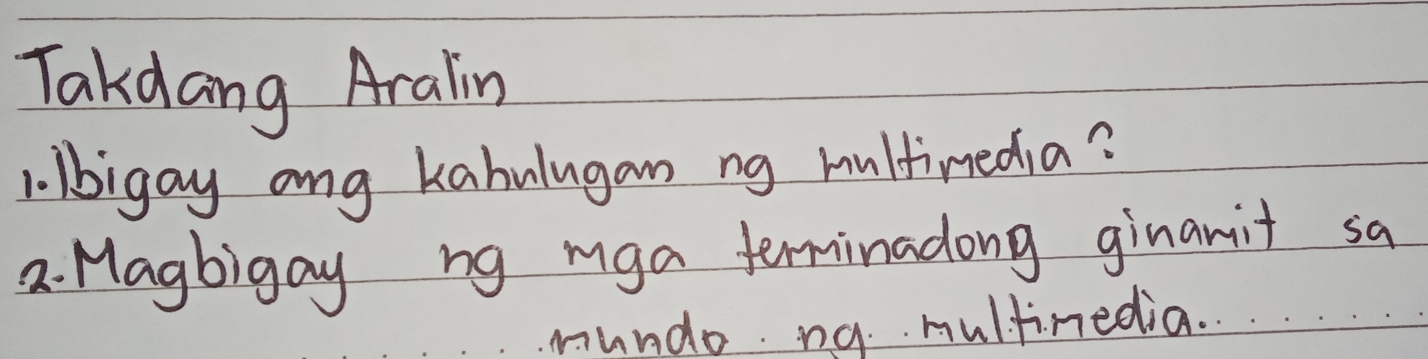 Takdang Aralin
1. Ibigay ang kahulugan ng multimedia?
2. Magbigay ng mga terminadong ginamit sa
mundo ng multimedia.